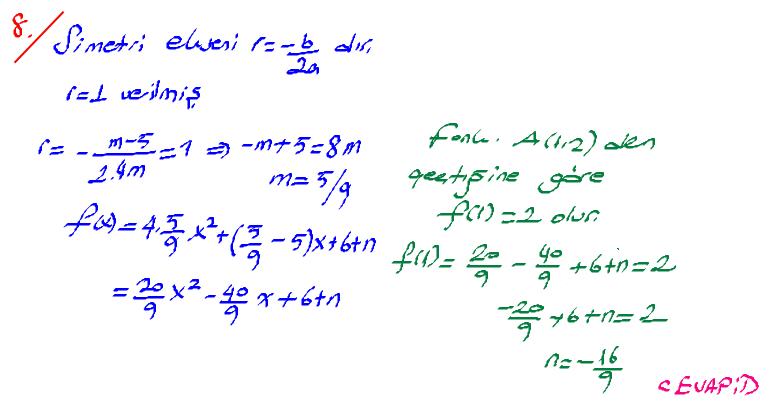 8.
Simetri ekseni r = -b/2a dır.
r=1 verilmiş
r = - (m-5)/(2.4m) = 1 ⇒ -m+5=8m
m = 5/9
f(x) = 4.5/9 x² + (5/9 - 5)x+6+n
= 20/9 x² - 40/9 x + 6+n
fonk. A(1,2) den
geçtiğine göre
f(1) = 2 olur.
f(1) = 20/9 - 40/9 + 6+n = 2
-20/9 + 6 + n = 2
n = -16/9
CEVAP: D